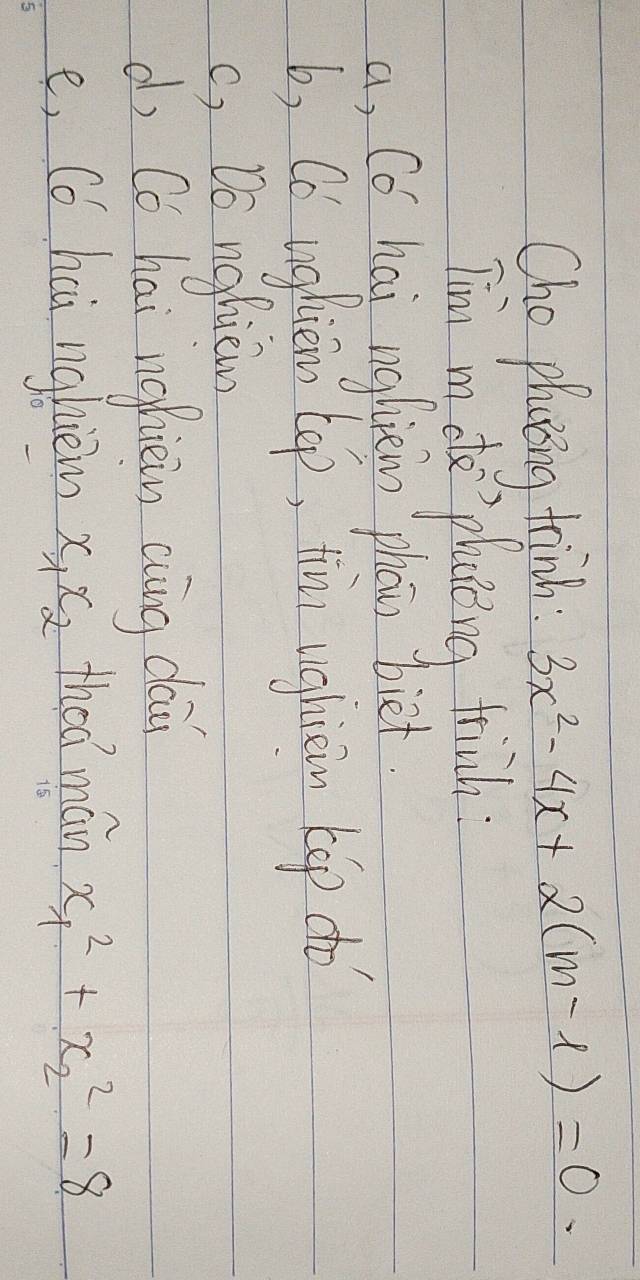 Cho phương trình: 3x² - 4x + 2(m - 1) = 0.
Tìm m để phương trình:
a, Có hai nghiệm phân biệt.
b, Có nghiệm kép, tìm nghiệm kép đó
c, Vô nghiệm
d, Có hai nghiệm cùng dấu
e, Có hai nghiệm x₁x₂ thoả mãn x₁² + x₂² = 8
5 10 15